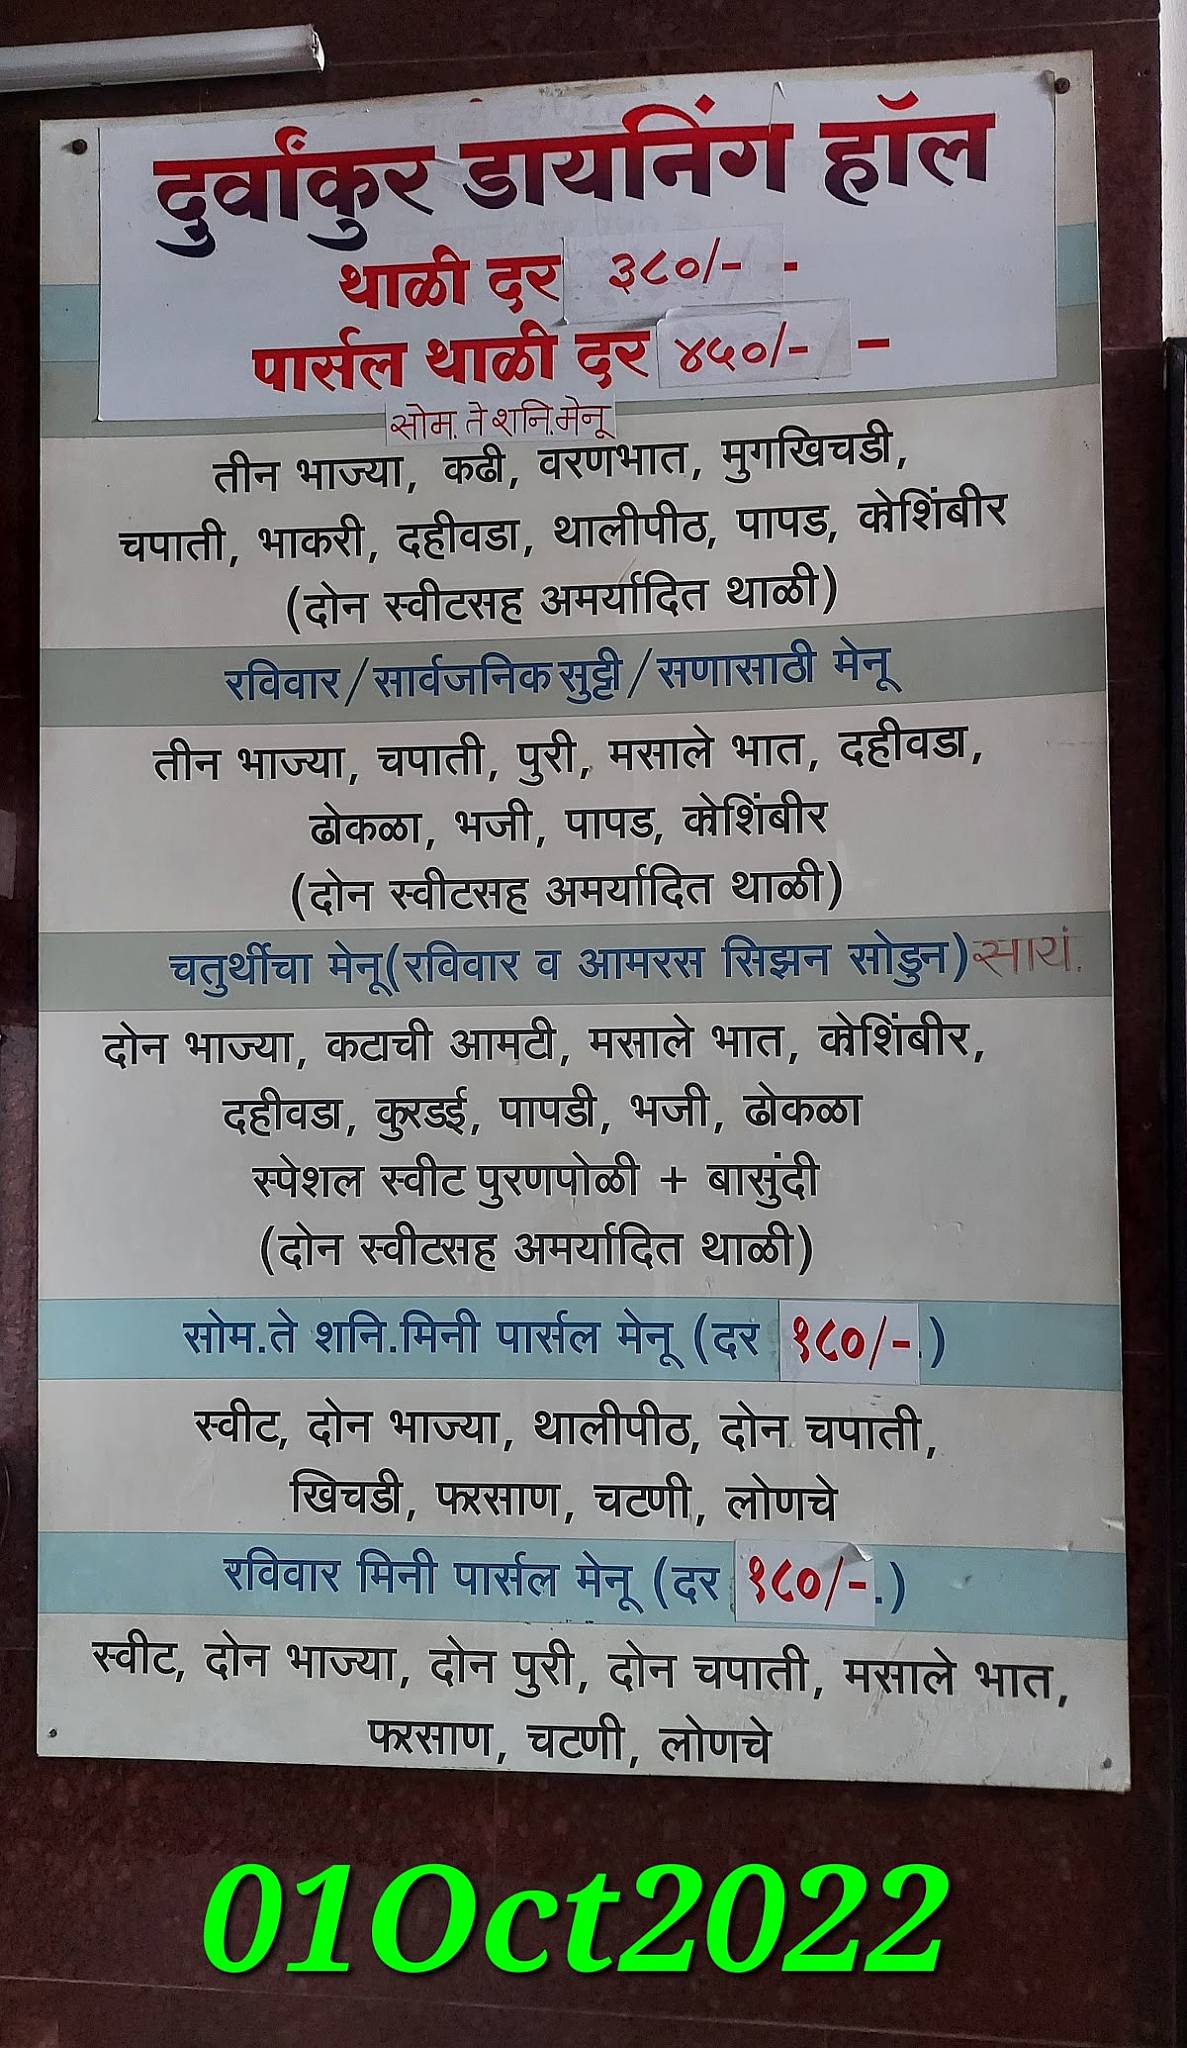 दुर्वांकुर डायनिंग हॉल
थाळी दर ३८०/- -
पार्सल थाळी दर ४५०/- -
सोम. ते शनि.मेनू
तीन भाज्या, कढी, वरणभात, मुगखिचडी,
चपाती, भाकरी, दहीवडा, थालीपीठ, पापड, कोशिंबीर
(दोन स्वीटसह अमर्यादित थाळी)
रविवार/सार्वजनिक सुट्टी/सणासाठी मेनू
तीन भाज्या, चपाती, पुरी, मसाले भात, दहीवडा,
ढोकळा, भजी, पापड, कोशिंबीर
(दोन स्वीटसह अमर्यादित थाळी)
चतुर्थीचा मेनू(रविवार व आमरस सिझन सोडुन) सायं.
दोन भाज्या, कटाची आमटी, मसाले भात, कोशिंबीर,
दहीवडा, कुरडई, पापडी, भजी, ढोकळा
स्पेशल स्वीट पुरणपोळी + बासुंदी
(दोन स्वीटसह अमर्यादित थाळी)
सोम.ते शनि.मिनी पार्सल मेनू (दर १८०/-.)
स्वीट, दोन भाज्या, थालीपीठ, दोन चपाती,
खिचडी, फरसाण, चटणी, लोणचे
रविवार मिनी पार्सल मेनू (दर १८०/-.)
स्वीट, दोन भाज्या, दोन पुरी, दोन चपाती, मसाले भात,
फरसाण, चटणी, लोणचे
01Oct2022